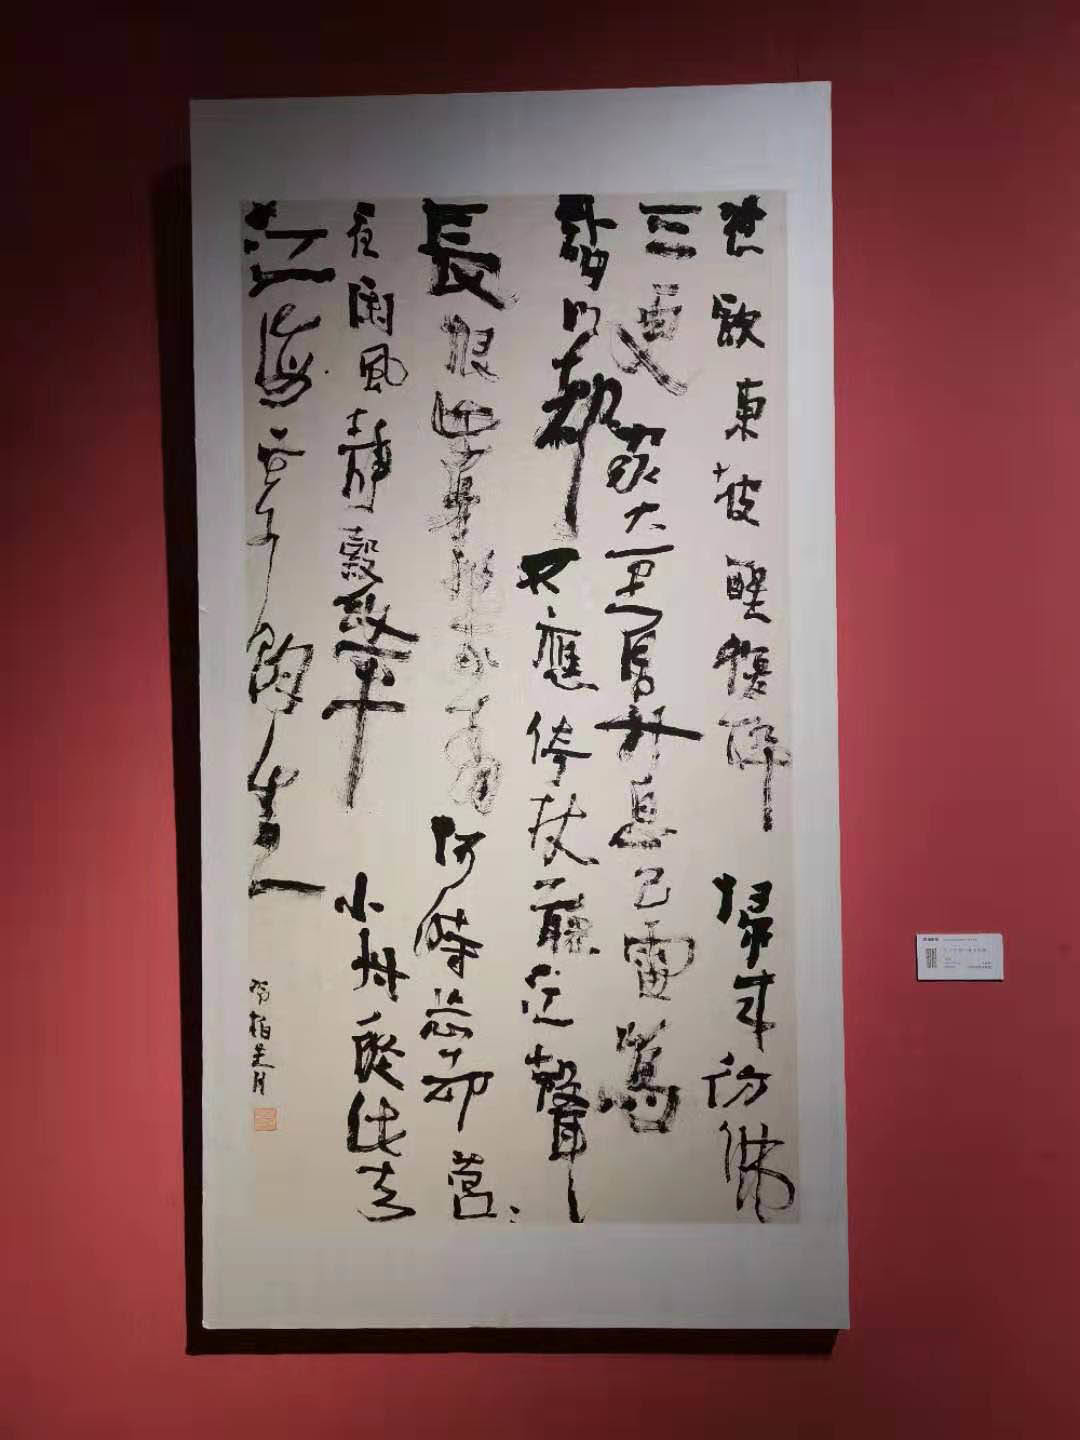 夜飲東坡醒復醉歸來彷佛
三更家童鼻息已雷鳴
敲門都不應倚杖聽江聲
長恨此身非我有何時忘却營〻
夜闌風靜縠紋平小舟從此去
江海寄餘生